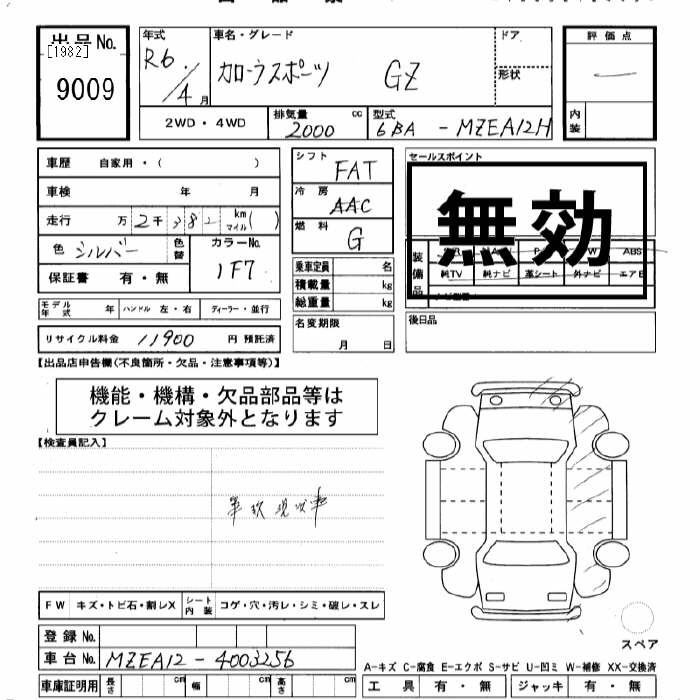 出品 No. 年式 車名・グレード ドア 評価点
[1982] R6. カローラスポーツ GZ
9009 /4月 形状
内装
2WD・4WD 排気量 cc 型式
2000 6BA - MZEA12H
車歴 自家用・( ) シフト FAT セールスポイント
車検 年 月 冷房 AAC 無効
走行 万 2千382 km マイル ( ) 燃料 G
色 シルバー 色替 カラーNo. 装備品 ABS
保証書 有・無 1F7 乗車定員 名 純TV 純ナビ 革シート 外ナビ エアB
積載量 kg
モデル年式 年 ハンドル 左・右 ディーラー・並行 総重量 kg
リサイクル料金 11900 円 預託済 名変期限 月 日 後日品
【出品店申告欄(不良箇所・欠品・注意事項等)】
機能・機構・欠品部品等は
クレーム対象外となります
【検査員記入】
現状車
FW キズ・トビ石・割レX シート内装 コゲ・穴・汚レ・シミ・破レ・スレ
スペア
登録 No.
車台 No. MZEA12-4003256
A-キズ C-腐食 E-エクボ S-サビ U-凹ミ W-補修 XX-交換済
車庫証明用 長さ cm 幅 cm 高さ cm 工具 有・無 ジャッキ 有・無